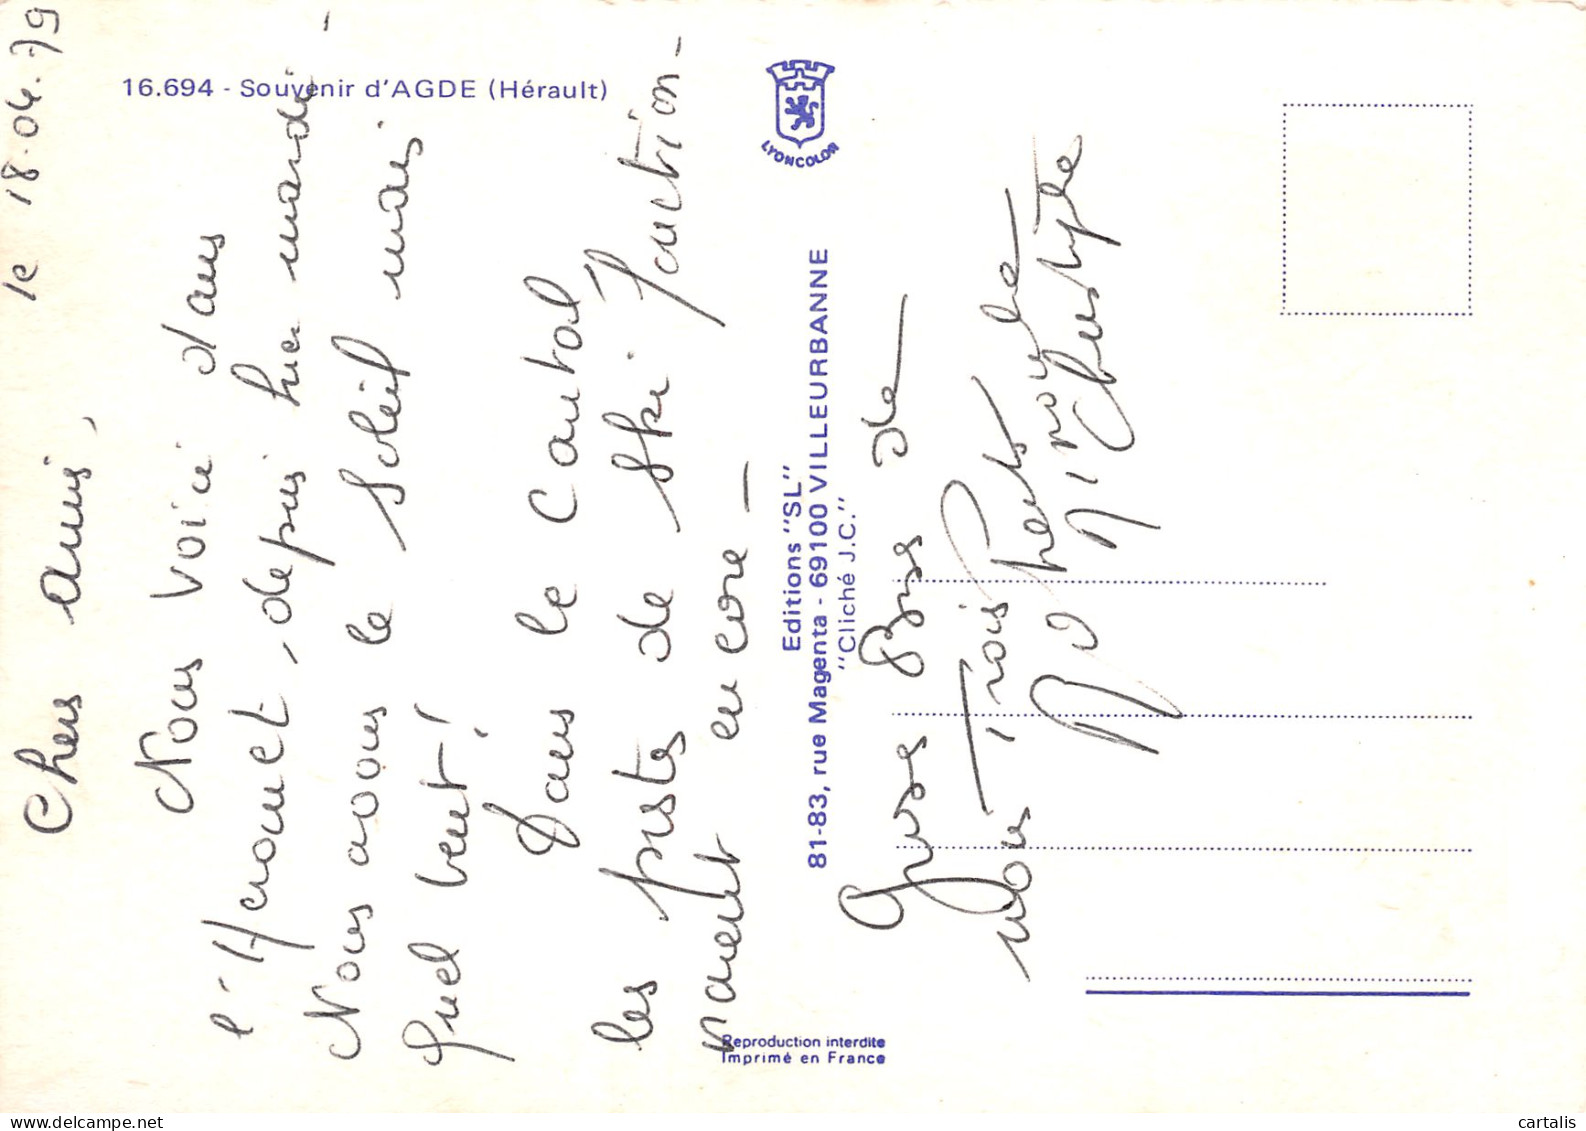 16.694 - Souvenir d'AGDE (Hérault)
LYONCOLOR
Editions "SL"
81-83, rue Magenta - 69100 VILLEURBANNE
"Cliché J.C."
Reproduction interdite
Imprimé en France
le 18.04.79
Chers amis,
Nous voici dans
l'Herault, depuis hier mardi -
Nous avons le soleil mais
quel vent!
Dans le Cantal
les pistes de ski fonction-
naient encore -
Gros Bises de
nous Trois
Christophe
cartalis